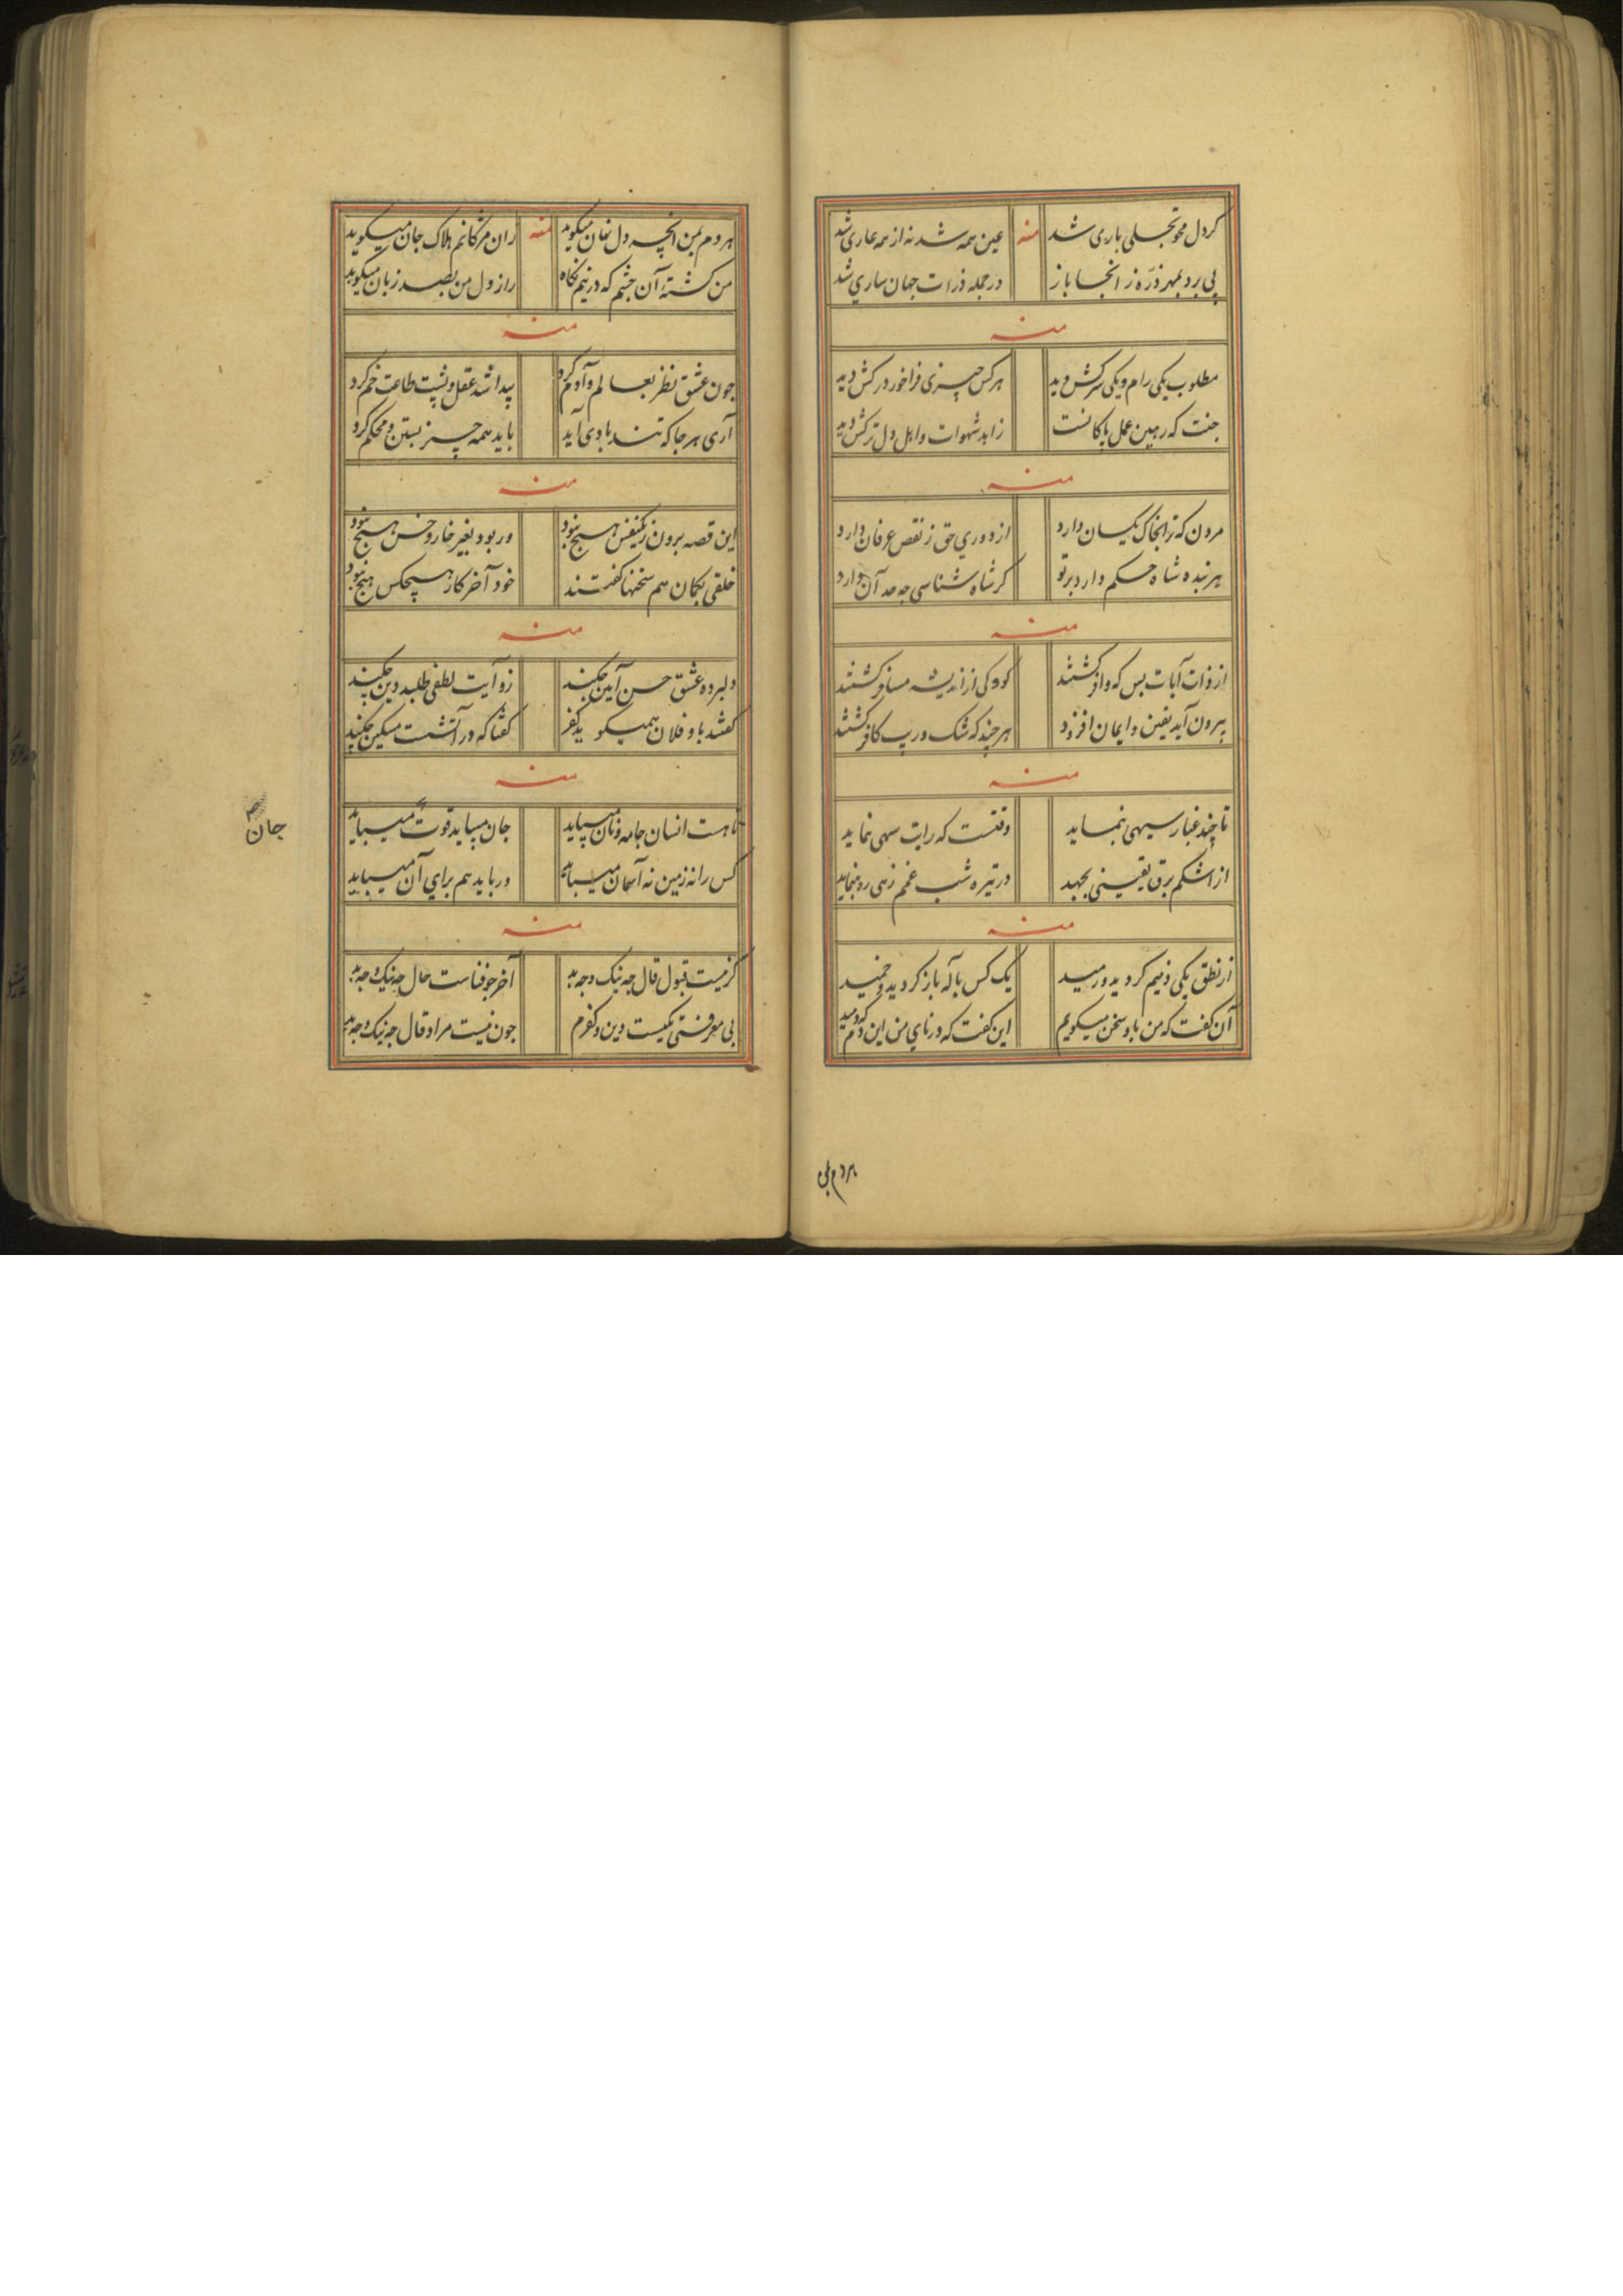 کر دل محو تجلی باری شد منه عین همه شد نه از همه عاری شد
پی برد بهر ذره ز انجا باز در جمله ذرات جهان ساری شد
منه
مطلوب یکی رام و یکی سرکش دید هر کس چیزی فراخور درکش دید
جنت که رهین عمل پاکانست زاهد شهوات و اهل دل ترکش دید
منه
که ترا بخاک یکسان دارد از دوری حق ز نقص عرفان دارد
هر بنده شاه حکم دارد بر تو کر شاه شناسی چه حد آن دارد
منه
از ذات آیات بس که وافر کشتند کز اندیشه مسافر کشتند
بیرون آید یقین و ایمان افزود هر چند که شک و ریب کافر کشتند
منه
تا چند غبار سیهی بنماید وقتست که رایت سهی نماید
از اشکم برق یقینی بجهد در تیره شب غمم رهی بنماید
منه
از نطق یکی ذمیم کردید و رمید یک کس باله باز کردید و خمید
آن کفت که من با و سخن میکویم این کفت که در نای من این دم که دمید
هر دم بمن
هر دم بمن انچه دل نهان میکوید منه زان مژکانم هلاک جان میکوید
من کشته آن چشم که در نیم نکاه راز دل من بصد زبان میکوید
منه
چون عشق نظر بعالم و آدم کرد پیدا شد عقل و پشت طاعت خم کرد
آری هر جا که تند بادی آید باید همه چیز بستن و محکم کرد
منه
این قصه برون ز یکنفس هیچ نبود ور بود بغیر خار و خس هیچ نبود
خلقی بکمان هم سخنها کفتند خود آخر کار هیچکس هیچ نبود
منه
دلبرده عشق حسن آیین چکند زو آیت لطفی طلبد دین چکند
کفتند باو فلان همیکوید کفر کفتا که در آتشت مسکین چکند
منه
تا هست انسان جامه و نان میباید جان میباید قوت میباید
کس را نه زمین نه آسمان میباید ور باید هم برای آن میباید
جان
منه
کر نیست قبول قال چه نیک و چه بد آخر چو فناست حال چه نیک و چه بد
بی معرفتی یکیست دین و کفرم چون نیست مراد قال چه نیک و چه بد